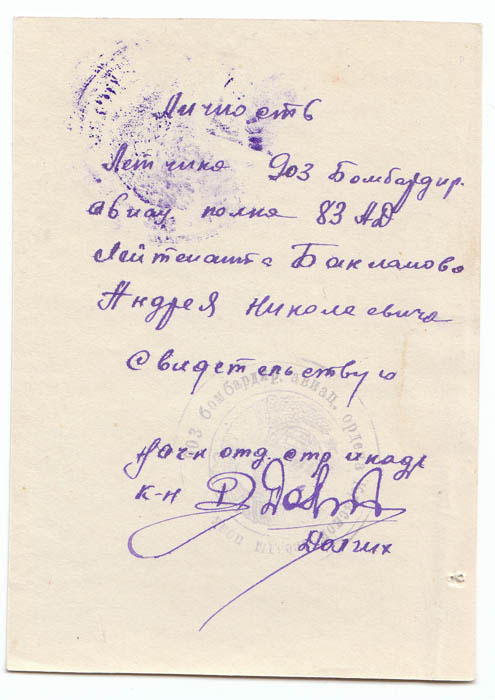 Личность
Летчика 903 Бомбардир.
авиац. полка 83 АД
Лейтенанта Бакланова
Андрея Николаевича
Свидетельствую
903 бомбардир. авиац. ордена
Нач-к отд. стр и кадр
к-н
Долгих